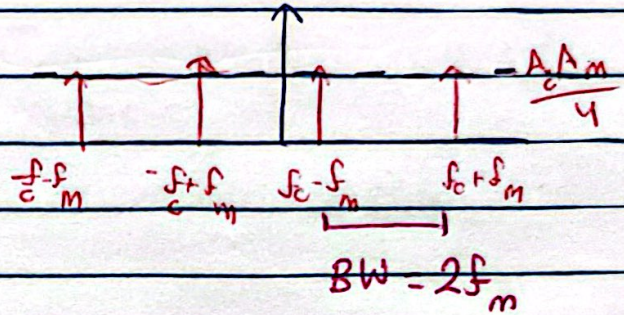 A_c A_m / 4
-f_c - f_m   -f_c + f_m   f_c - f_m   f_c + f_m
BW = 2f_m